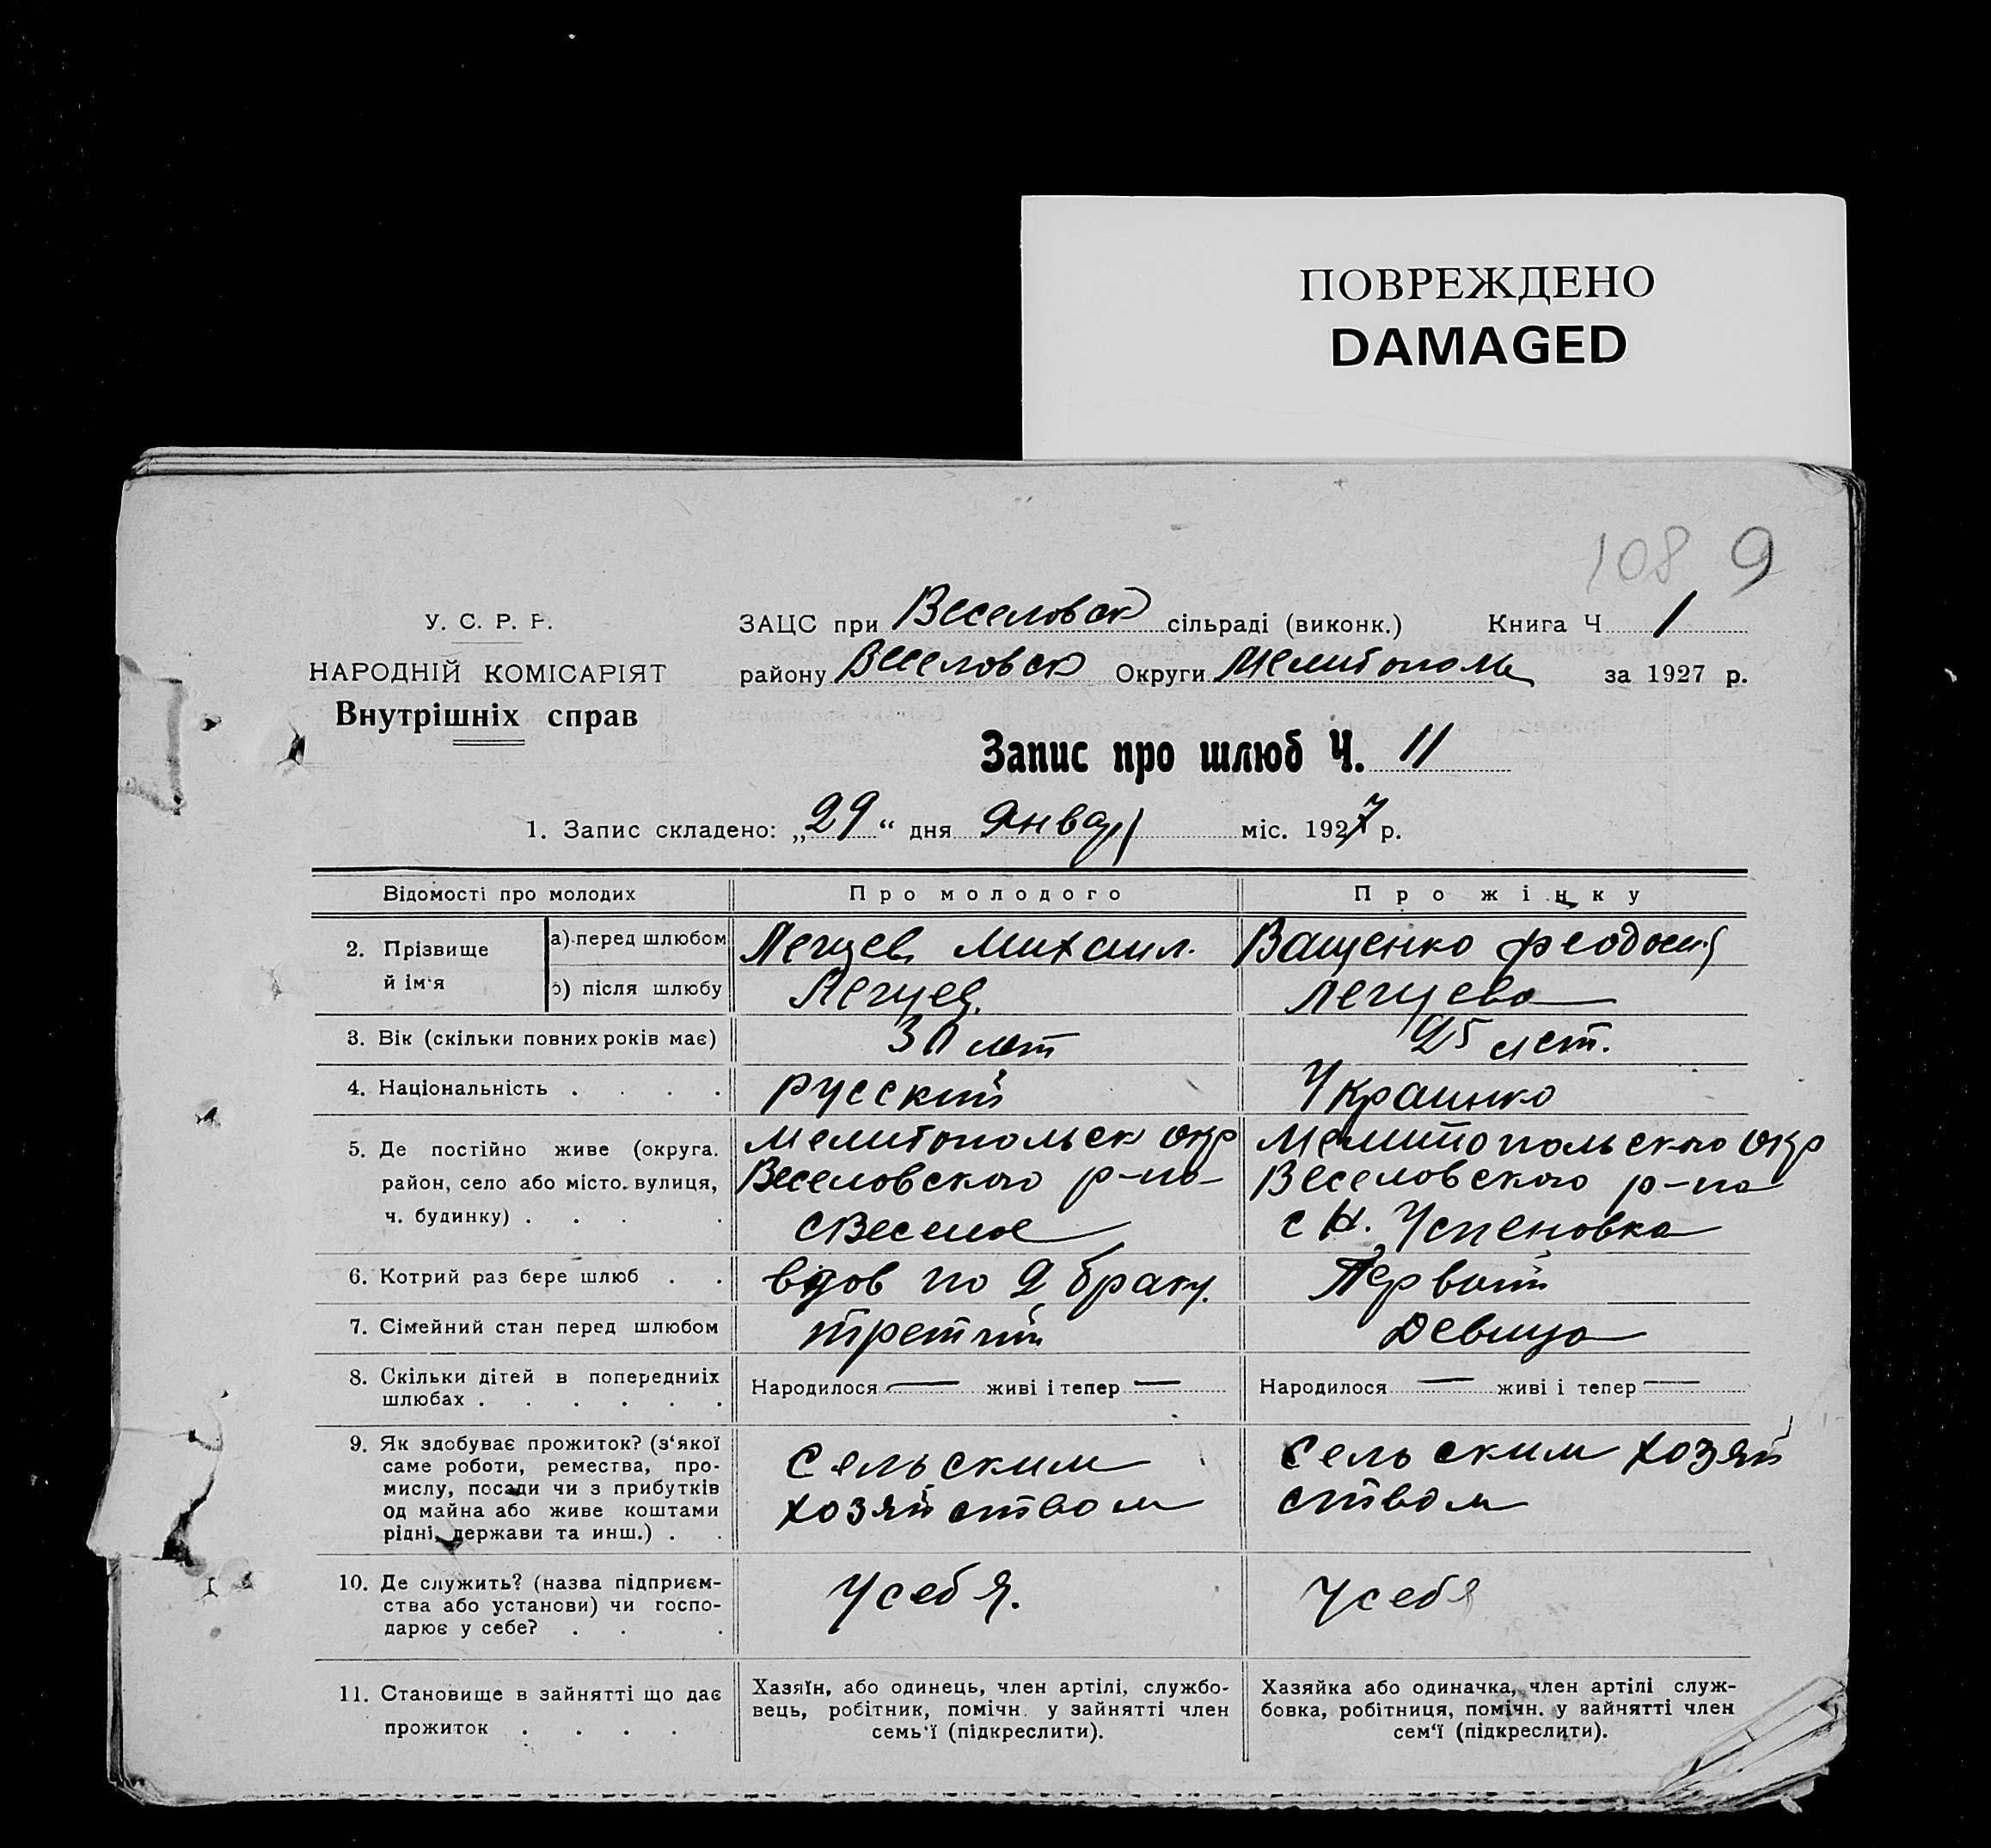 ПОВРЕЖДЕНО
DAMAGED
108 9
У. С. Р. Р.
НАРОДНІЙ КОМІСАРІЯТ
Внутрішніх справ
ЗАЦС при Веселовск сільраді (виконк.) Книга Ч 1
району Веселовск Округи Мелитополь за 1927 р.
Запис про шлюб Ч. 11
1. Запис складено: „29“ дня Января міс. 1927 р.
Відомості про молодих Про молодого Про жінку
2. Прізвище й ім‘я
а) перед шлюбом Михаил. Ващенко Феодосия
б) після шлюбу
3. Вік (скільки повних років має) 30 лет 25 лет.
4. Національність . . . . русский Украинка
5. Де постійно живе (округа. район, село або місто. вулиця, ч. будинку) . . . .
Мелитопольск окр
Веселовского р-на
с Веселое
Мелитопольского окр
Веселовского р-на
с Н. Успеновка
6. Котрий раз бере шлюб . . вдов по 2 браку. Первый
7. Сімейний стан перед шлюбом третий Девица
8. Скільки дітей в попередніх
шлюбах . . . . . .
Народилося — живі і тепер — Народилося — живі і тепер —
9. Як здобуває прожиток? (з‘якої
саме роботи, ремества, про-
мислу, посади чи з прибутків
од майна або живе коштами
рідні, держави та инш.) . .
Сельским
хозяйством
Сельским хозяй
ством
10. Де служить? (назва підприєм-
ства або установи) чи госпо-
дарює у себе? . . .
У себя.
У себя
11. Становище в зайнятті що дає
прожиток . . . .
Хазяїн, або одинець, член артілі, службо-
вець, робітник, помічн. у зайнятті член
семь‘ї (підкреслити).
Хазяйка або одиначка, член артілі служ-
бовка, робітниця, помічн. у зайнятті член
сем‘ї (підкреслити).